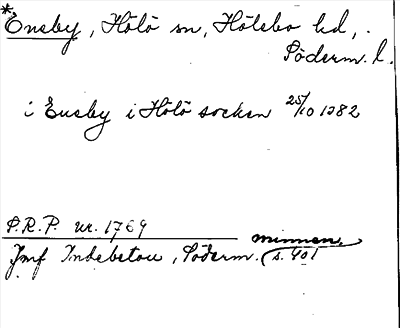 * Ensby, Hölö sn, Hölebo hd,
Söderm. l.
i Eneby i Hölö socken 25/10 1382
S.R.P. nr. 1769
Jmf Indebetou, Söderm. minnen, s. 401